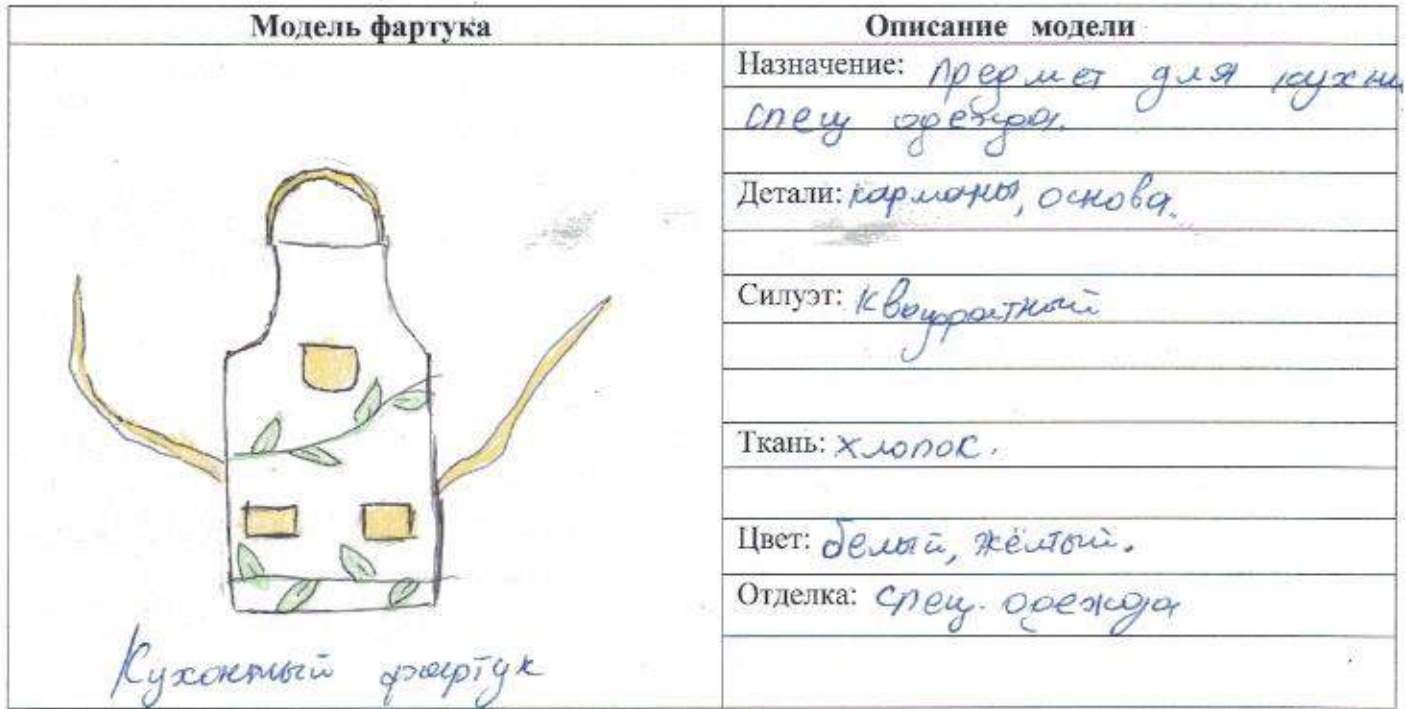 Модель фартука
Описание модели
Назначение: предмет для кухни
спец одежда.
Детали: карманы, основа.
Силуэт: квадратный
Ткань: хлопок.
Цвет: белый, жёлтый.
Отделка: спец. одежда
Кухонный фартук